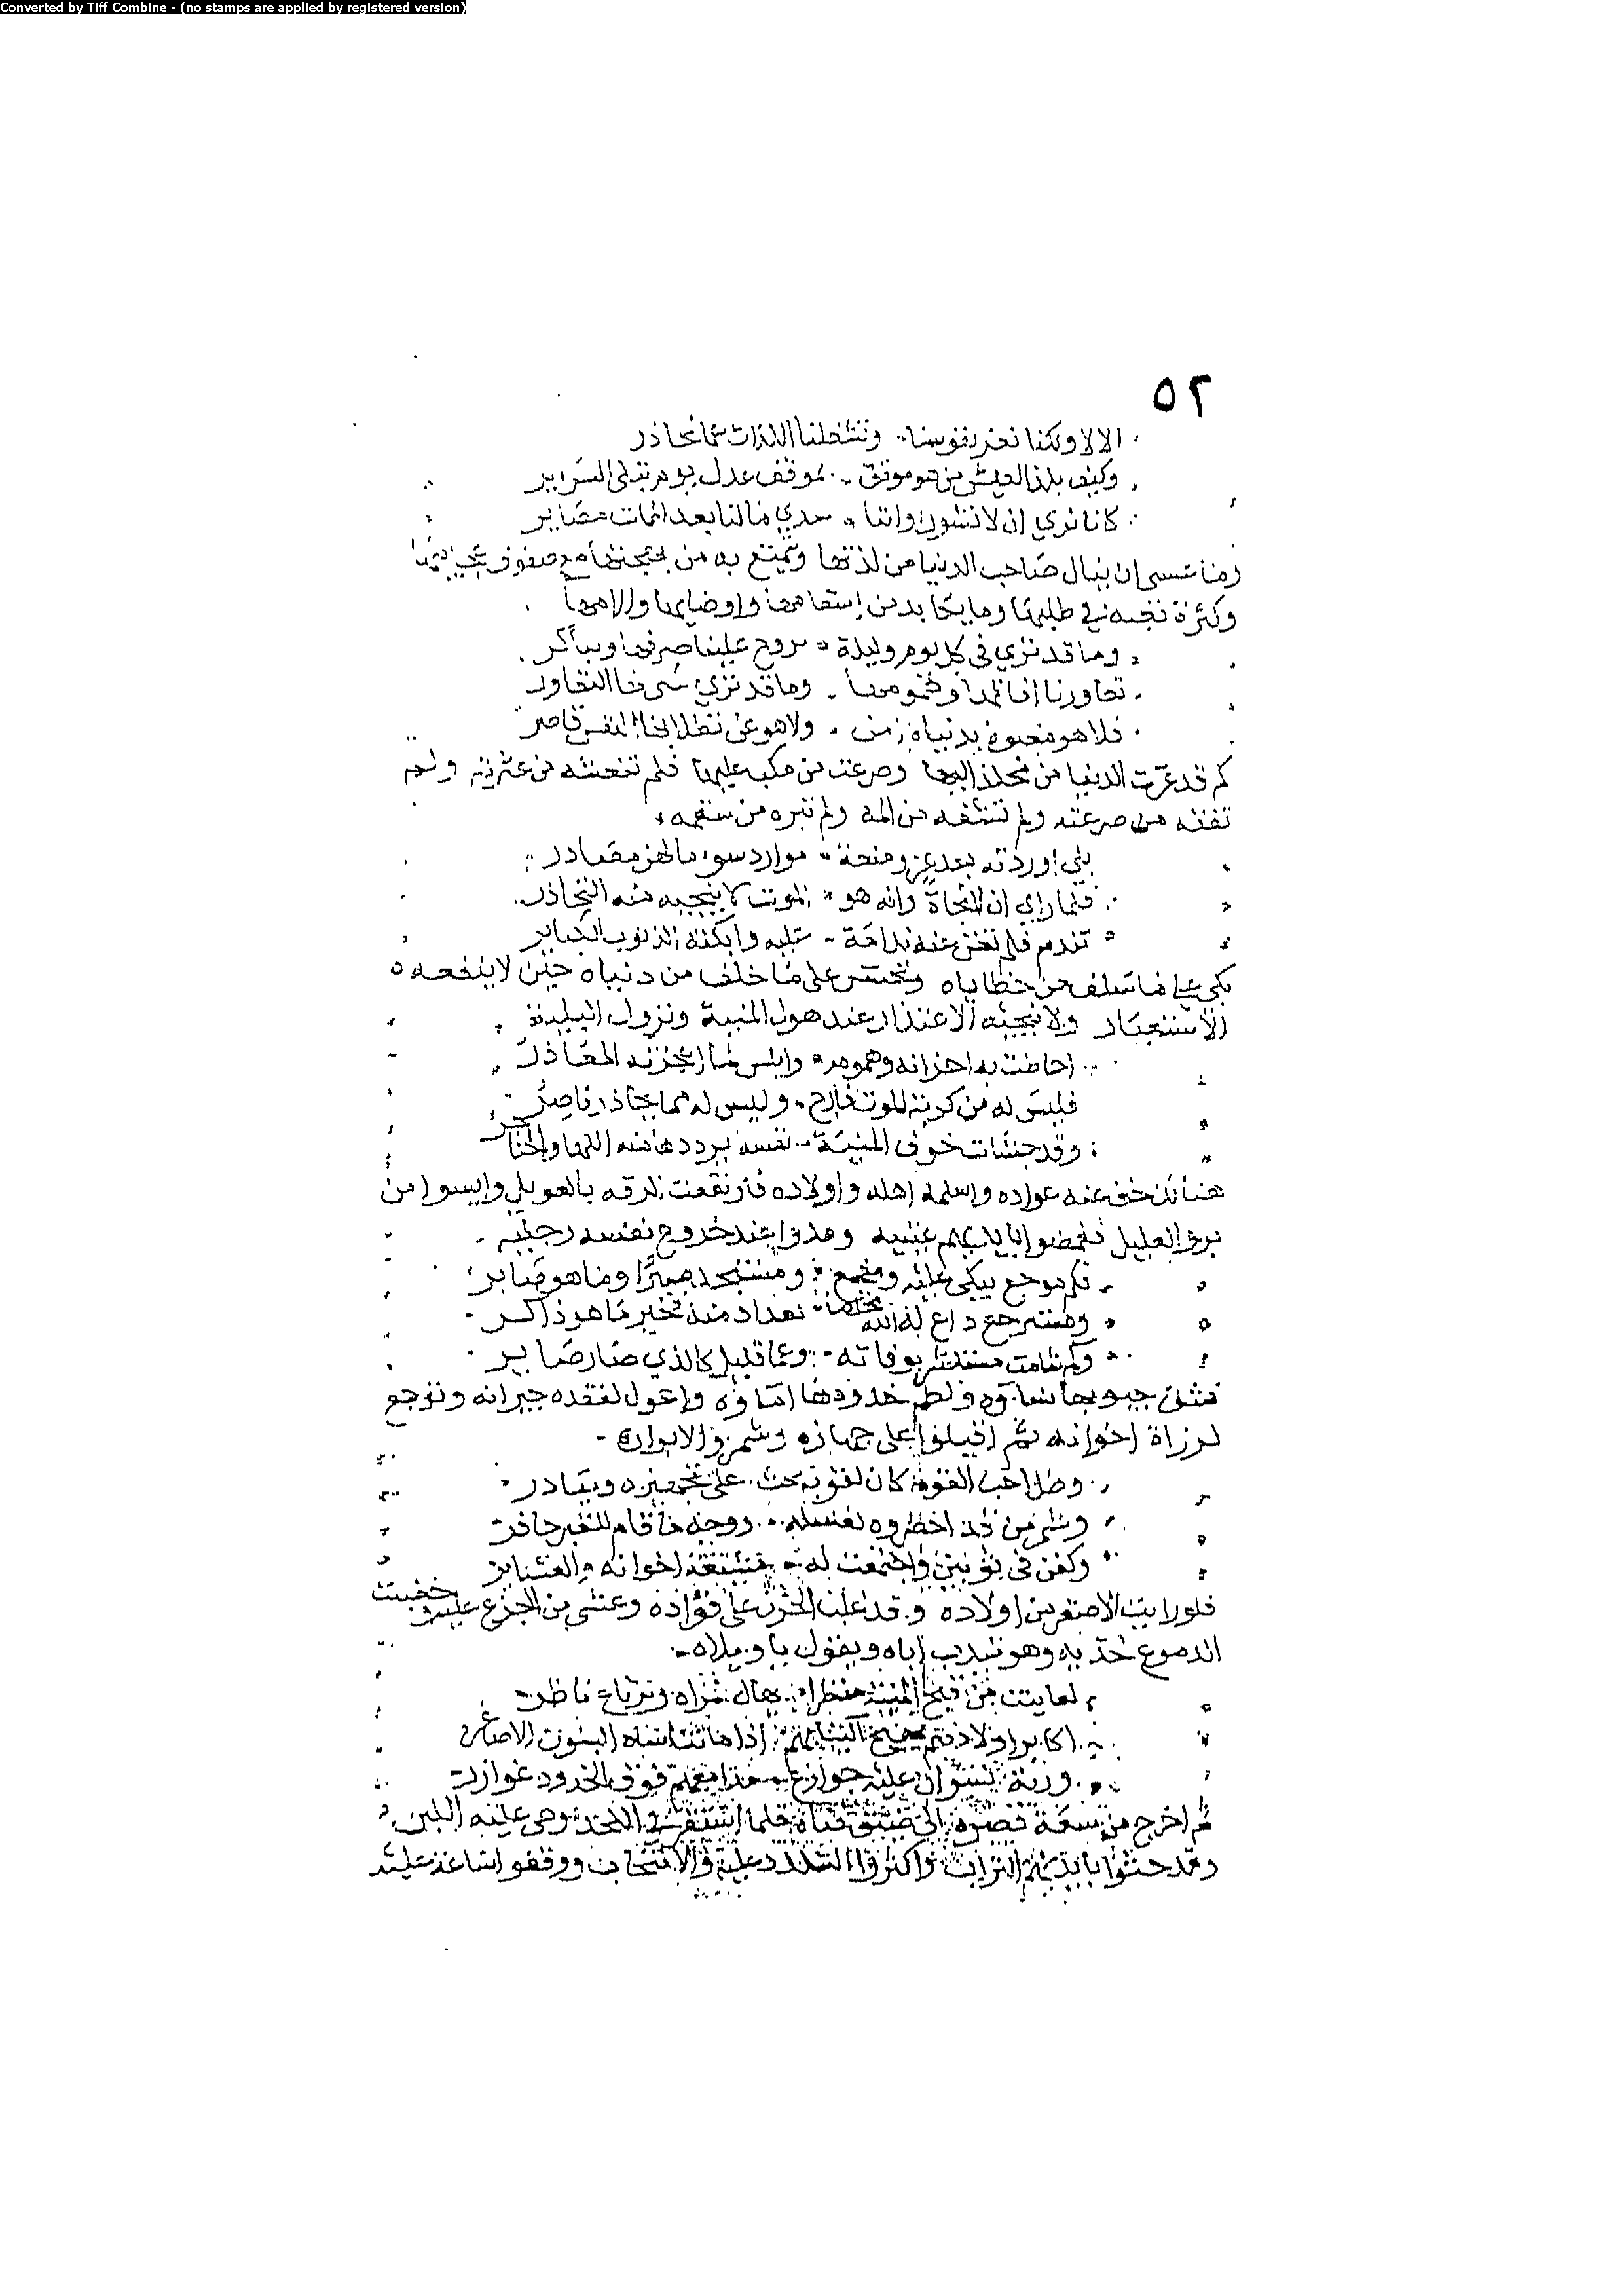 Converted by Tiff Combine - (no stamps are applied by registered version)
٥٢
الا لا ولكنا نغر نفوسنا وتشغلنا اللذات عما نحاذر
وكيف يلذ العيش من هو موقن بموقف عدل يوم تبلى السراير
كانا نري ان لا نشور واننا سدي ما لنا بعد الممات مصاير
وما عسى ان ينال صاحب الدنيا من لذتها ويتمتع به من بهجتها مع صنوف عجايبها
وكثرة تعبه في طلبها وما يكابد من اسقامها واوصابها والامها
وما قد نري في كل يوم وليلة يروح علينا صرفها ويباكر
تعاورنا افاتها وهمومها وما قد نري
فلا هو مغبوط بدنياه امن ولا هو عن تطلابها النفس قاصر
كم قد غرت الدنيا من مخلد اليها وصرعت من مكب عليها فلم تنعشه من عثرته ولم
من صرعته ولم تشفه من المه ولم تبره من سقمه
بلي اوردته بعد عز ومنعة موارد سوء ما لهن مصادر
فلما راي ان لا نجاة وانه هو الموت لا ينجيه منه التحاذر
تندم فلم تغن عنه ندامة عليه وابكته الذنوب الكباير
بكي على ما سلف من خطاياه وتحسر على ما خلف من دنياه حين لا ينفعه
الاستعبار ولا ينجيه الاعتذار عند هول المنية ونزول البلية
احاطت به احزانه وهمومه وابلس لما اعجزته المعاذر
فليس له من كربة الموت فارج وليس له مما يحاذر ناصر
وقد جشات خوف المنية نفسه يرددها منه اللها والحناجر
هنالك خف عنه عواده واسلمه اهله واولاده فارتفعت الرنة بالعويل وايسوا من
برؤ العليل فغمضوا بايديهم عينيه ومدوا عند خروج نفسه رجليه
فكم موجع يبكي عليه ومفجع ومستنجد صبرا وما هو صابر
ومسترجع داع له الله مخلصا يعدد منه خير ما هو ذاكر
وكم شامت مستبشر بوفاته وعما قليل كالذي صار صاير
فشق جيوبها نساؤه ولطم خدودها اماؤه واعول لفقده جيرانه وتوجع
لرزاة اخوانه ثم اقبلوا على جهازه وشمروا لابرازه
وظل احب القوم كان لقربه يحث على تجهيزه ويبادر
وشمر من قد احضروه لغسله ووجه لما قام للقبر حافر
وكفن في ثوبين واجتمعت له مشيعة اخوانه والعشاير
فلو رايت الاصغر من اولاده وقد غلب الحزن على فؤاده وغشي من الجزع عليه وخضبت
الدموع خديه وهو يندب اباه ويقول يا ويلاه
لعاينت من قبح المنية منظرا يهال لمراه ويرتاع ناظر
اكابر اولاد يهيج اكتيابهم اذا ما تناساه البنون الاصاغر
ورنة نسوان عليه جوازع مدامعهم فوق الخدود غوازر
ثم اخرج من سعة قصره الى ضيق قبره فلما استقر في اللحد وهي عليه اللبن
وقد حثوا بايديهم التراب واكثروا التلدد عليه والانتحاب ووقفوا ساعة عليه